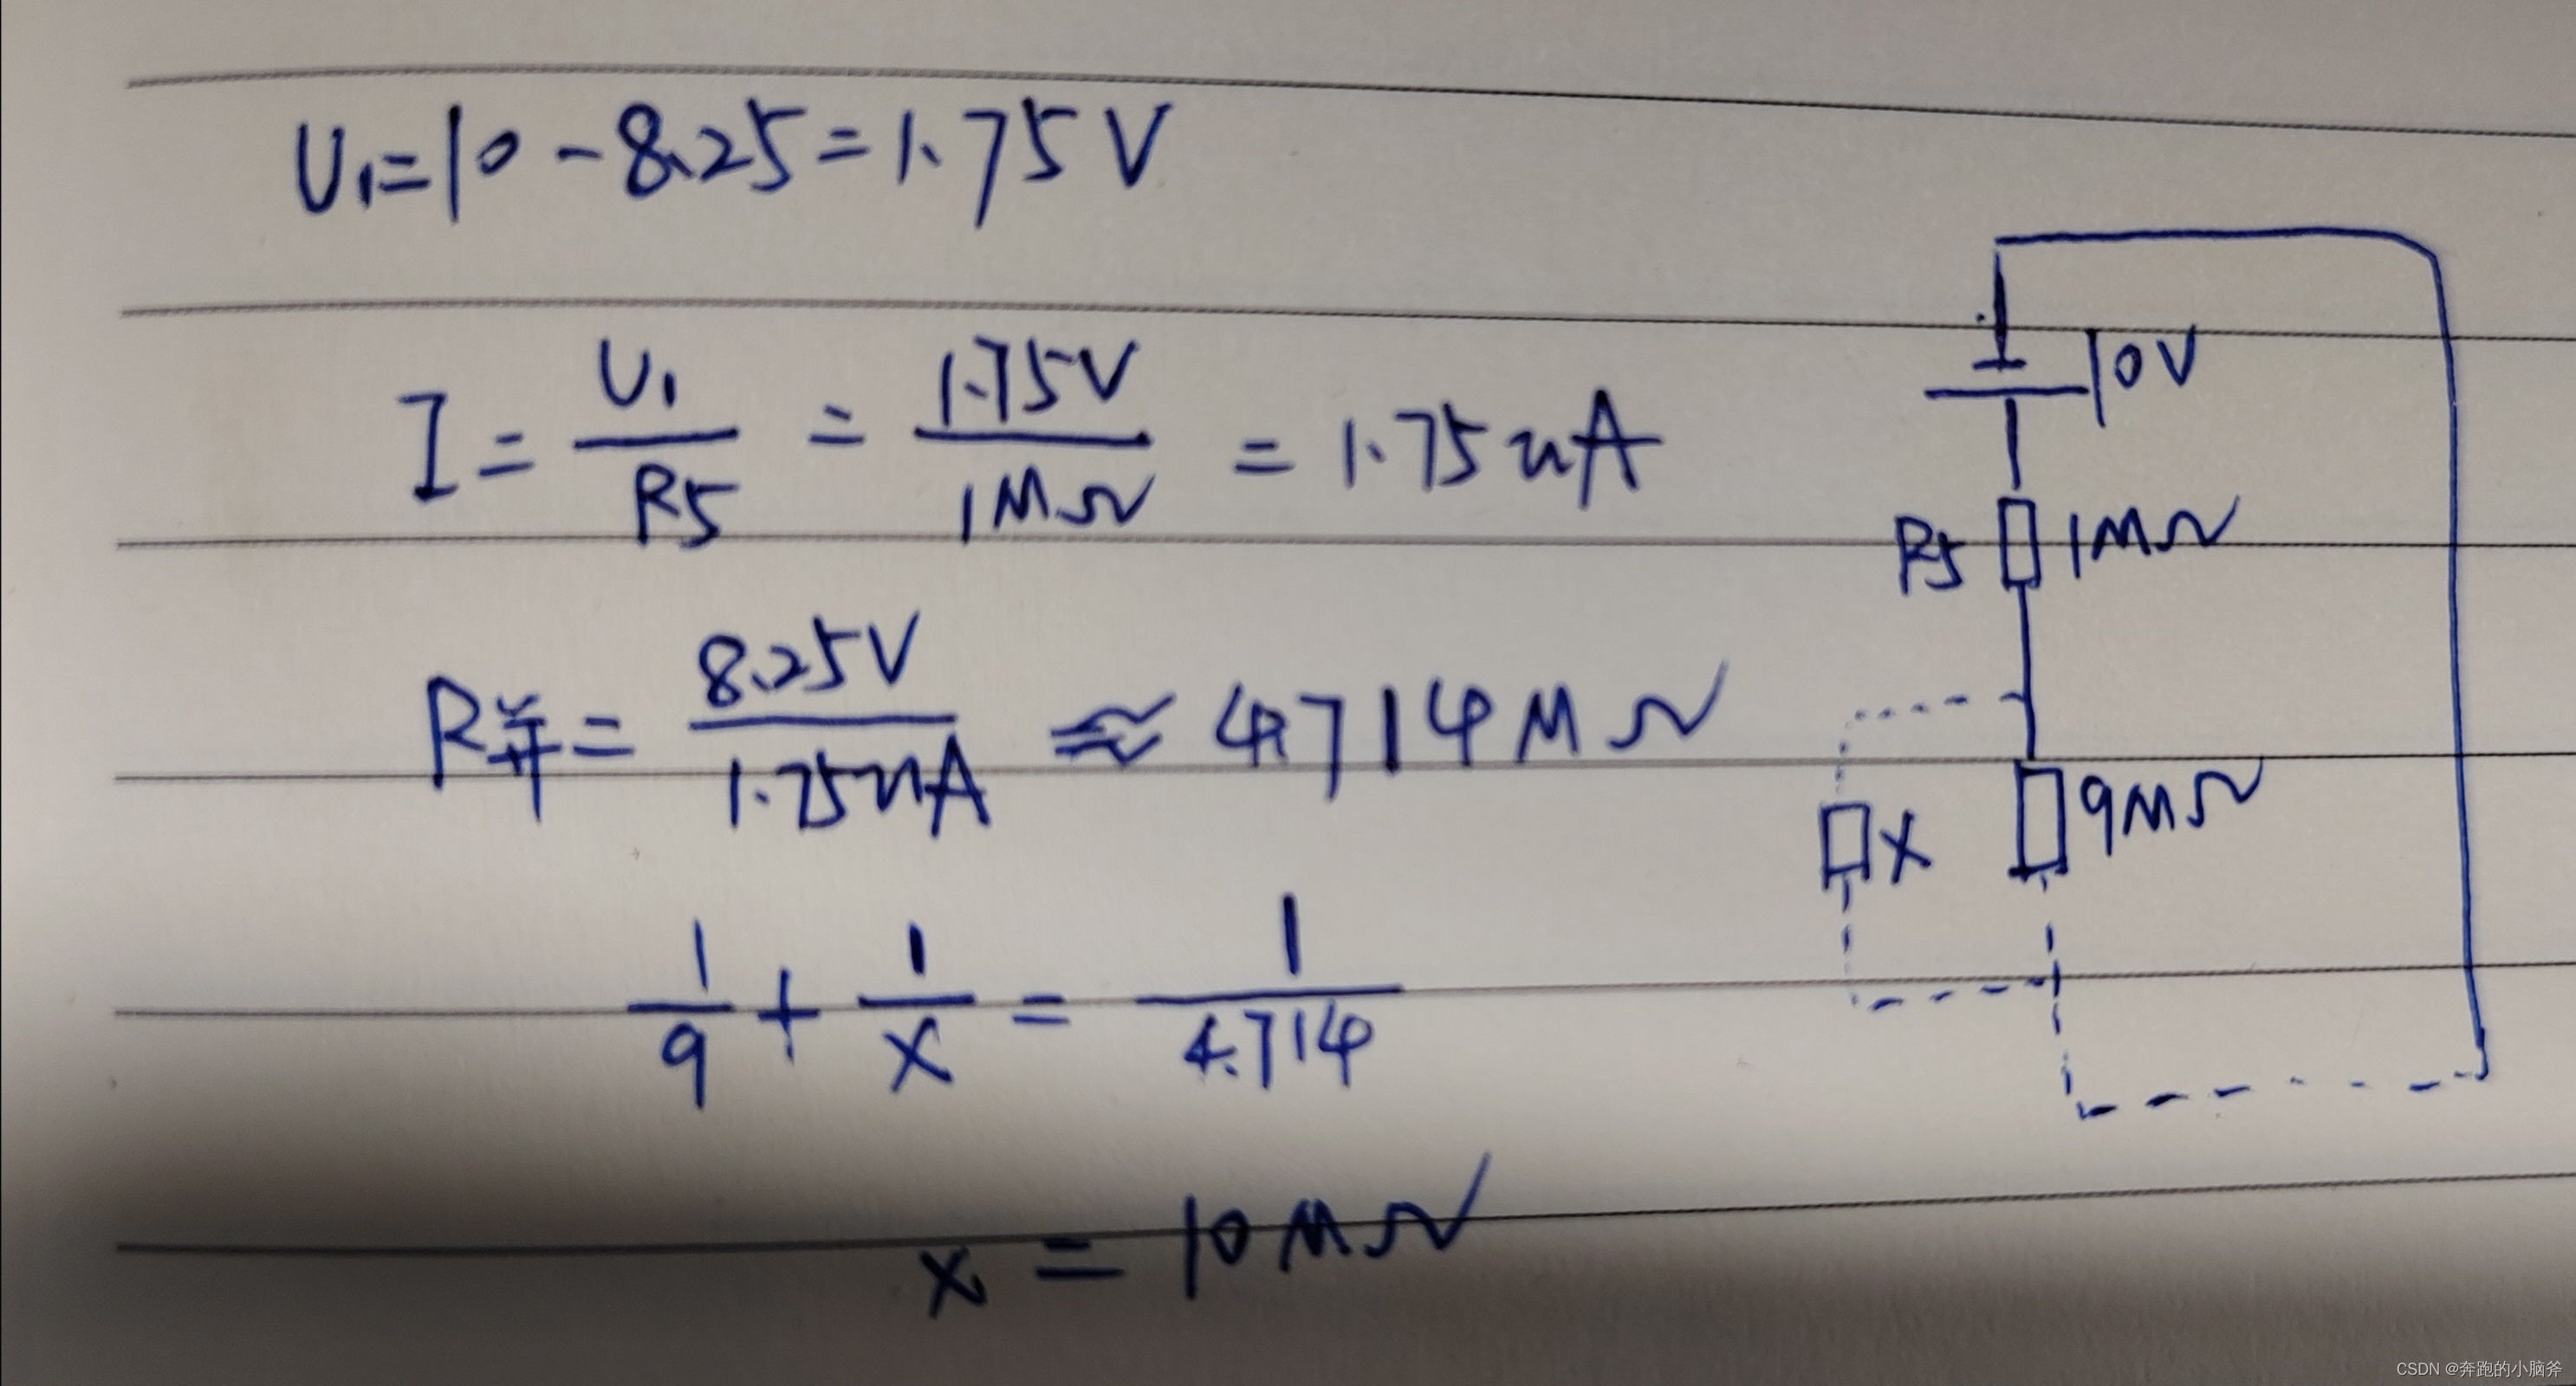 U₁=10-8.25=1.75V
I = U₁/R5 = 1.75V/1MΩ = 1.75uA
R并 = 8.25V/1.75uA ≈ 4.714MΩ
1/9 + 1/X = 1/4.714
x = 10MΩ
10V
R5 1MΩ
X 9MΩ
CSDN @奔跑的小脑斧